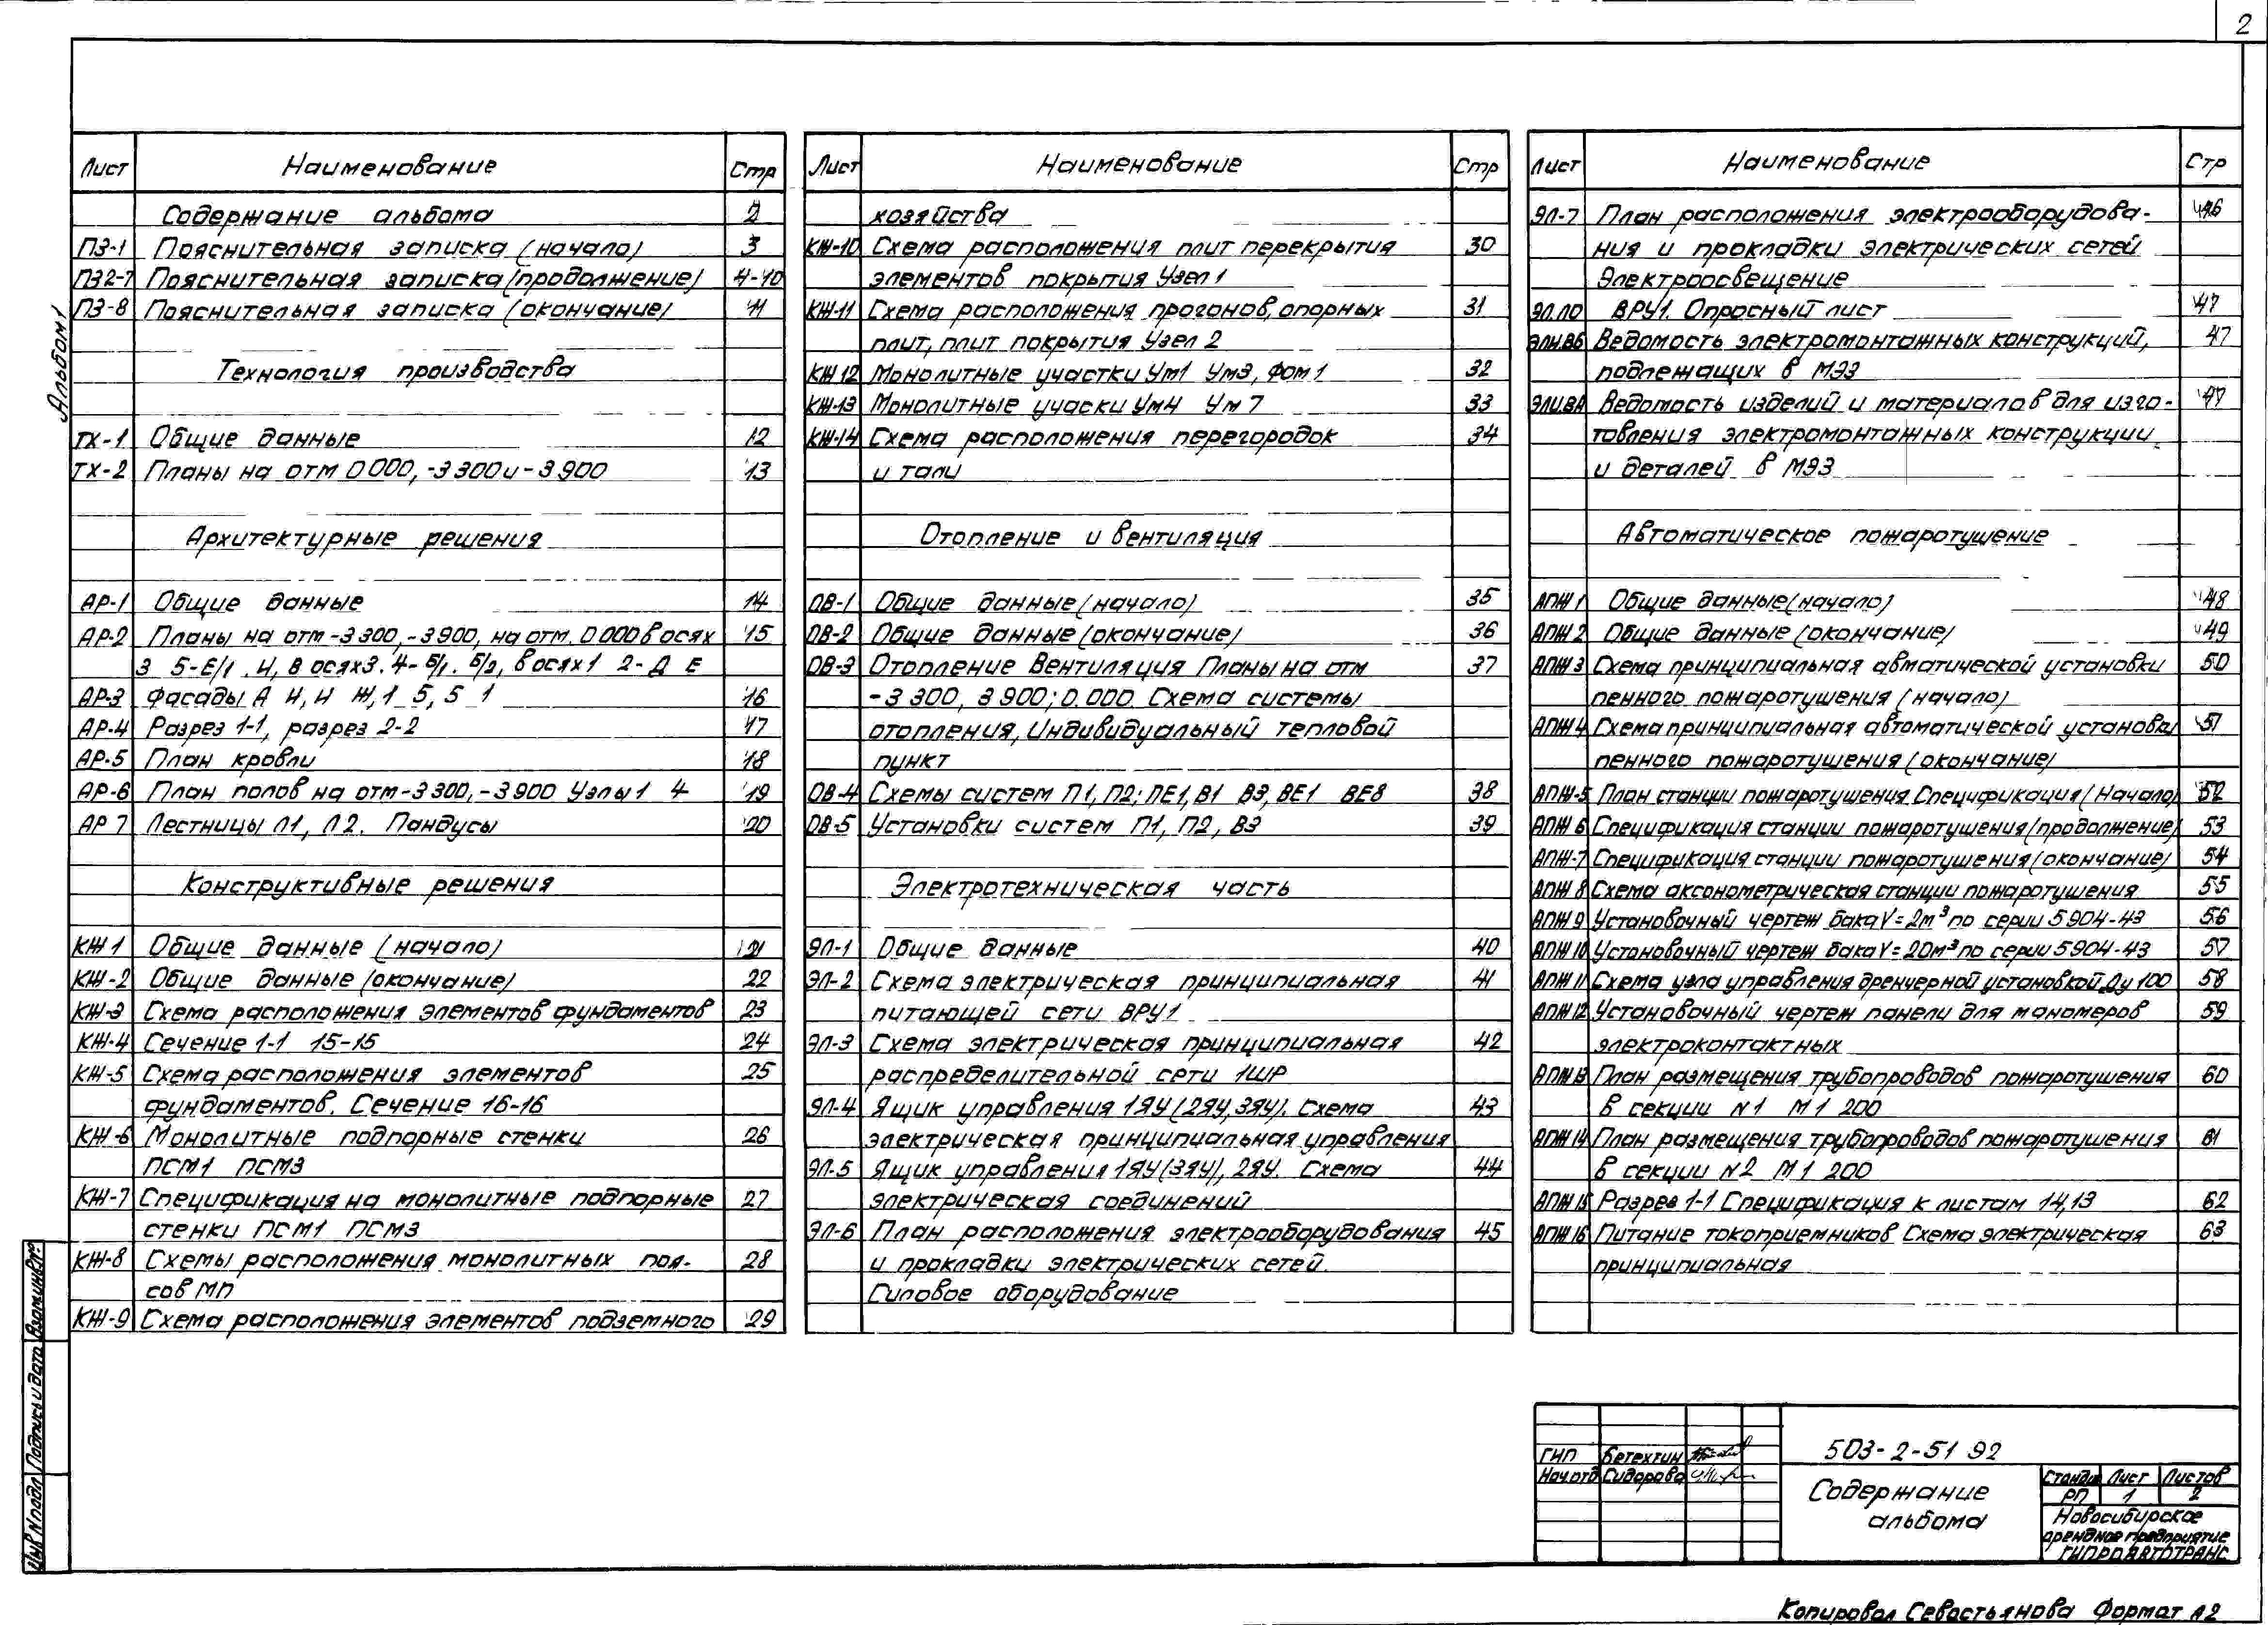 2
Альбом 1
Лист Наименование Стр
Содержание альбома 2
ПЗ-1 Пояснительная записка (начало) 3
ПЗ2-7 Пояснительная записка (продолжение) 4-10
ПЗ-8 Пояснительная записка (окончание) 11
Технология производства
ТХ-1 Общие данные 12
ТХ-2 Планы на отм 0 000, -3 300 и -3 900 13
Архитектурные решения
АР-1 Общие данные 14
АР-2 Планы на отм -3 300, -3 900, на отм. 0 000 в осях 15
3 5-Е/1 . И, в осях 3. 4- Б/1. Б/2, в осях 1 2- Д Е
АР-3 Фасады А И, И Ж, 1 5, 5 1 16
АР-4 Разрез 1-1, разрез 2-2 17
АР-5 План кровли 18
АР-6 План полов на отм -3 300, -3 900 Узлы 1 4 19
АР 7 Лестницы Л1, Л2. Пандусы 20
Конструктивные решения
КЖ 1 Общие данные (начало) 21
КЖ-2 Общие данные (окончание) 22
КЖ-3 Схема расположения элементов фундаментов 23
КЖ-4 Сечение 1-1 15-15 24
КЖ-5 Схема расположения элементов 25
фундаментов. Сечение 16-16
КЖ-6 Монолитные подпорные стенки 26
ПСМ1 ПСМ3
КЖ-7 Спецификация на монолитные подпорные 27
стенки ПСМ1 ПСМ3
КЖ-8 Схемы расположения монолитных поя- 28
сов МП
КЖ-9 Схема расположения элементов подземного 29
Лист Наименование Стр
хозяйства
КЖ-10 Схема расположения плит перекрытия 30
элементов покрытия Узел 1
КЖ-11 Схема расположения прогонов, опорных 31
плит, плит покрытия Узел 2
КЖ 12 Монолитные участки Ум1 Ум3, Фом 1 32
КЖ-13 Монолитные учаски Ум4 Ум 7 33
КЖ-14 Схема расположения перегородок 34
и тали
Отопление и вентиляция
ОВ-1 Общие данные (начало) 35
ОВ-2 Общие данные (окончание) 36
ОВ-3 Отопление Вентиляция Планы на отм 37
-3 300, 3 900; 0.000 Схема системы
отопления, Индивидуальный тепловой
пункт
ОВ-4 Схемы систем П1, П2; ПЕ1, В1 В3, ВЕ1 ВЕ8 38
ОВ-5 Установки систем П1, П2, В3 39
Электротехническая часть
ЭЛ-1 Общие данные 40
ЭЛ-2 Схема электрическая принципиальная 41
питающей сети ВРУ1
ЭЛ-3 Схема электрическая принципиальная 42
распределительной сети 1ШР
ЭЛ-4 Ящик управления 1ЯУ (2ЯУ, 3ЯУ). Схема 43
электрическая принципиальная управления
ЭЛ-5 Ящик управления 1ЯУ (3ЯУ), 2ЯУ. Схема 44
электрическая соединений
ЭЛ-6 План расположения электрооборудования 45
и прокладки электрических сетей.
Силовое оборудование
Лист Наименование Стр
ЭЛ-7 План расположения электрооборудова- 46
ния и прокладки электрических сетей
Электроосвещение
ЭЛ.ЛО ВРУ1. Опросный лист 47
ЭЛИ.ВБ Ведомость электромонтажных конструкций, 47
подлежащих в МЭЗ
ЭЛИ.ВА Ведомость изделий и материалов для изго- 47
товления электромонтажных конструкции
и деталей в МЭЗ
Автоматическое пожаротушение
АПЖ 1 Общие данные (начало) 48
АПЖ 2 Общие данные (окончание) 49
АПЖ 3 Схема принципиальная авматической установки 50
пенного пожаротушения (начало)
АПЖ 4 Схема принципиальная автоматической установки 51
пенного пожаротушения (окончание)
АПЖ-5 План станции пожаротушения Спецификация (Начало) 52
АПЖ 6 Спецификация станции пожаротушения (продолжение) 53
АПЖ-7 Спецификация станции пожаротушения (окончание) 54
АПЖ 8 Схема аксонометрическая станции пожаротушения 55
АПЖ 9 Установочный чертеж бака V=2м³ по серии 5 904-43 56
АПЖ 10 Установочный чертеж бака V=20м³ по серии 5 904-43 57
АПЖ 11 Схема узла управления дренчерной установкой Ду 100 58
АПЖ 12 Установочный чертеж панели для манометров 59
электроконтактных
АПЖ 13 План размещения трубопроводов пожаротушения 60
в секции N1 М 1 200
АПЖ 14 План размещения трубопроводов пожаротушения 61
в секции N2 М 1 200
АПЖ 15 Разрез 1-1 Спецификация к листам 14, 13 62
АПЖ 16 Питание токоприемников Схема электрическая 63
принципиальная
ГИП Бетехтин
Нач отд Сидорова
503-2-51 92
Содержание
альбома
Стадия Лист Листов
РП 1 2
Новосибирское
арендное предприятие
ГИПРОАВТОТРАНС
Инв N подл Подпись и дата Взам инв N
Копировал Севостьянова Формат А2